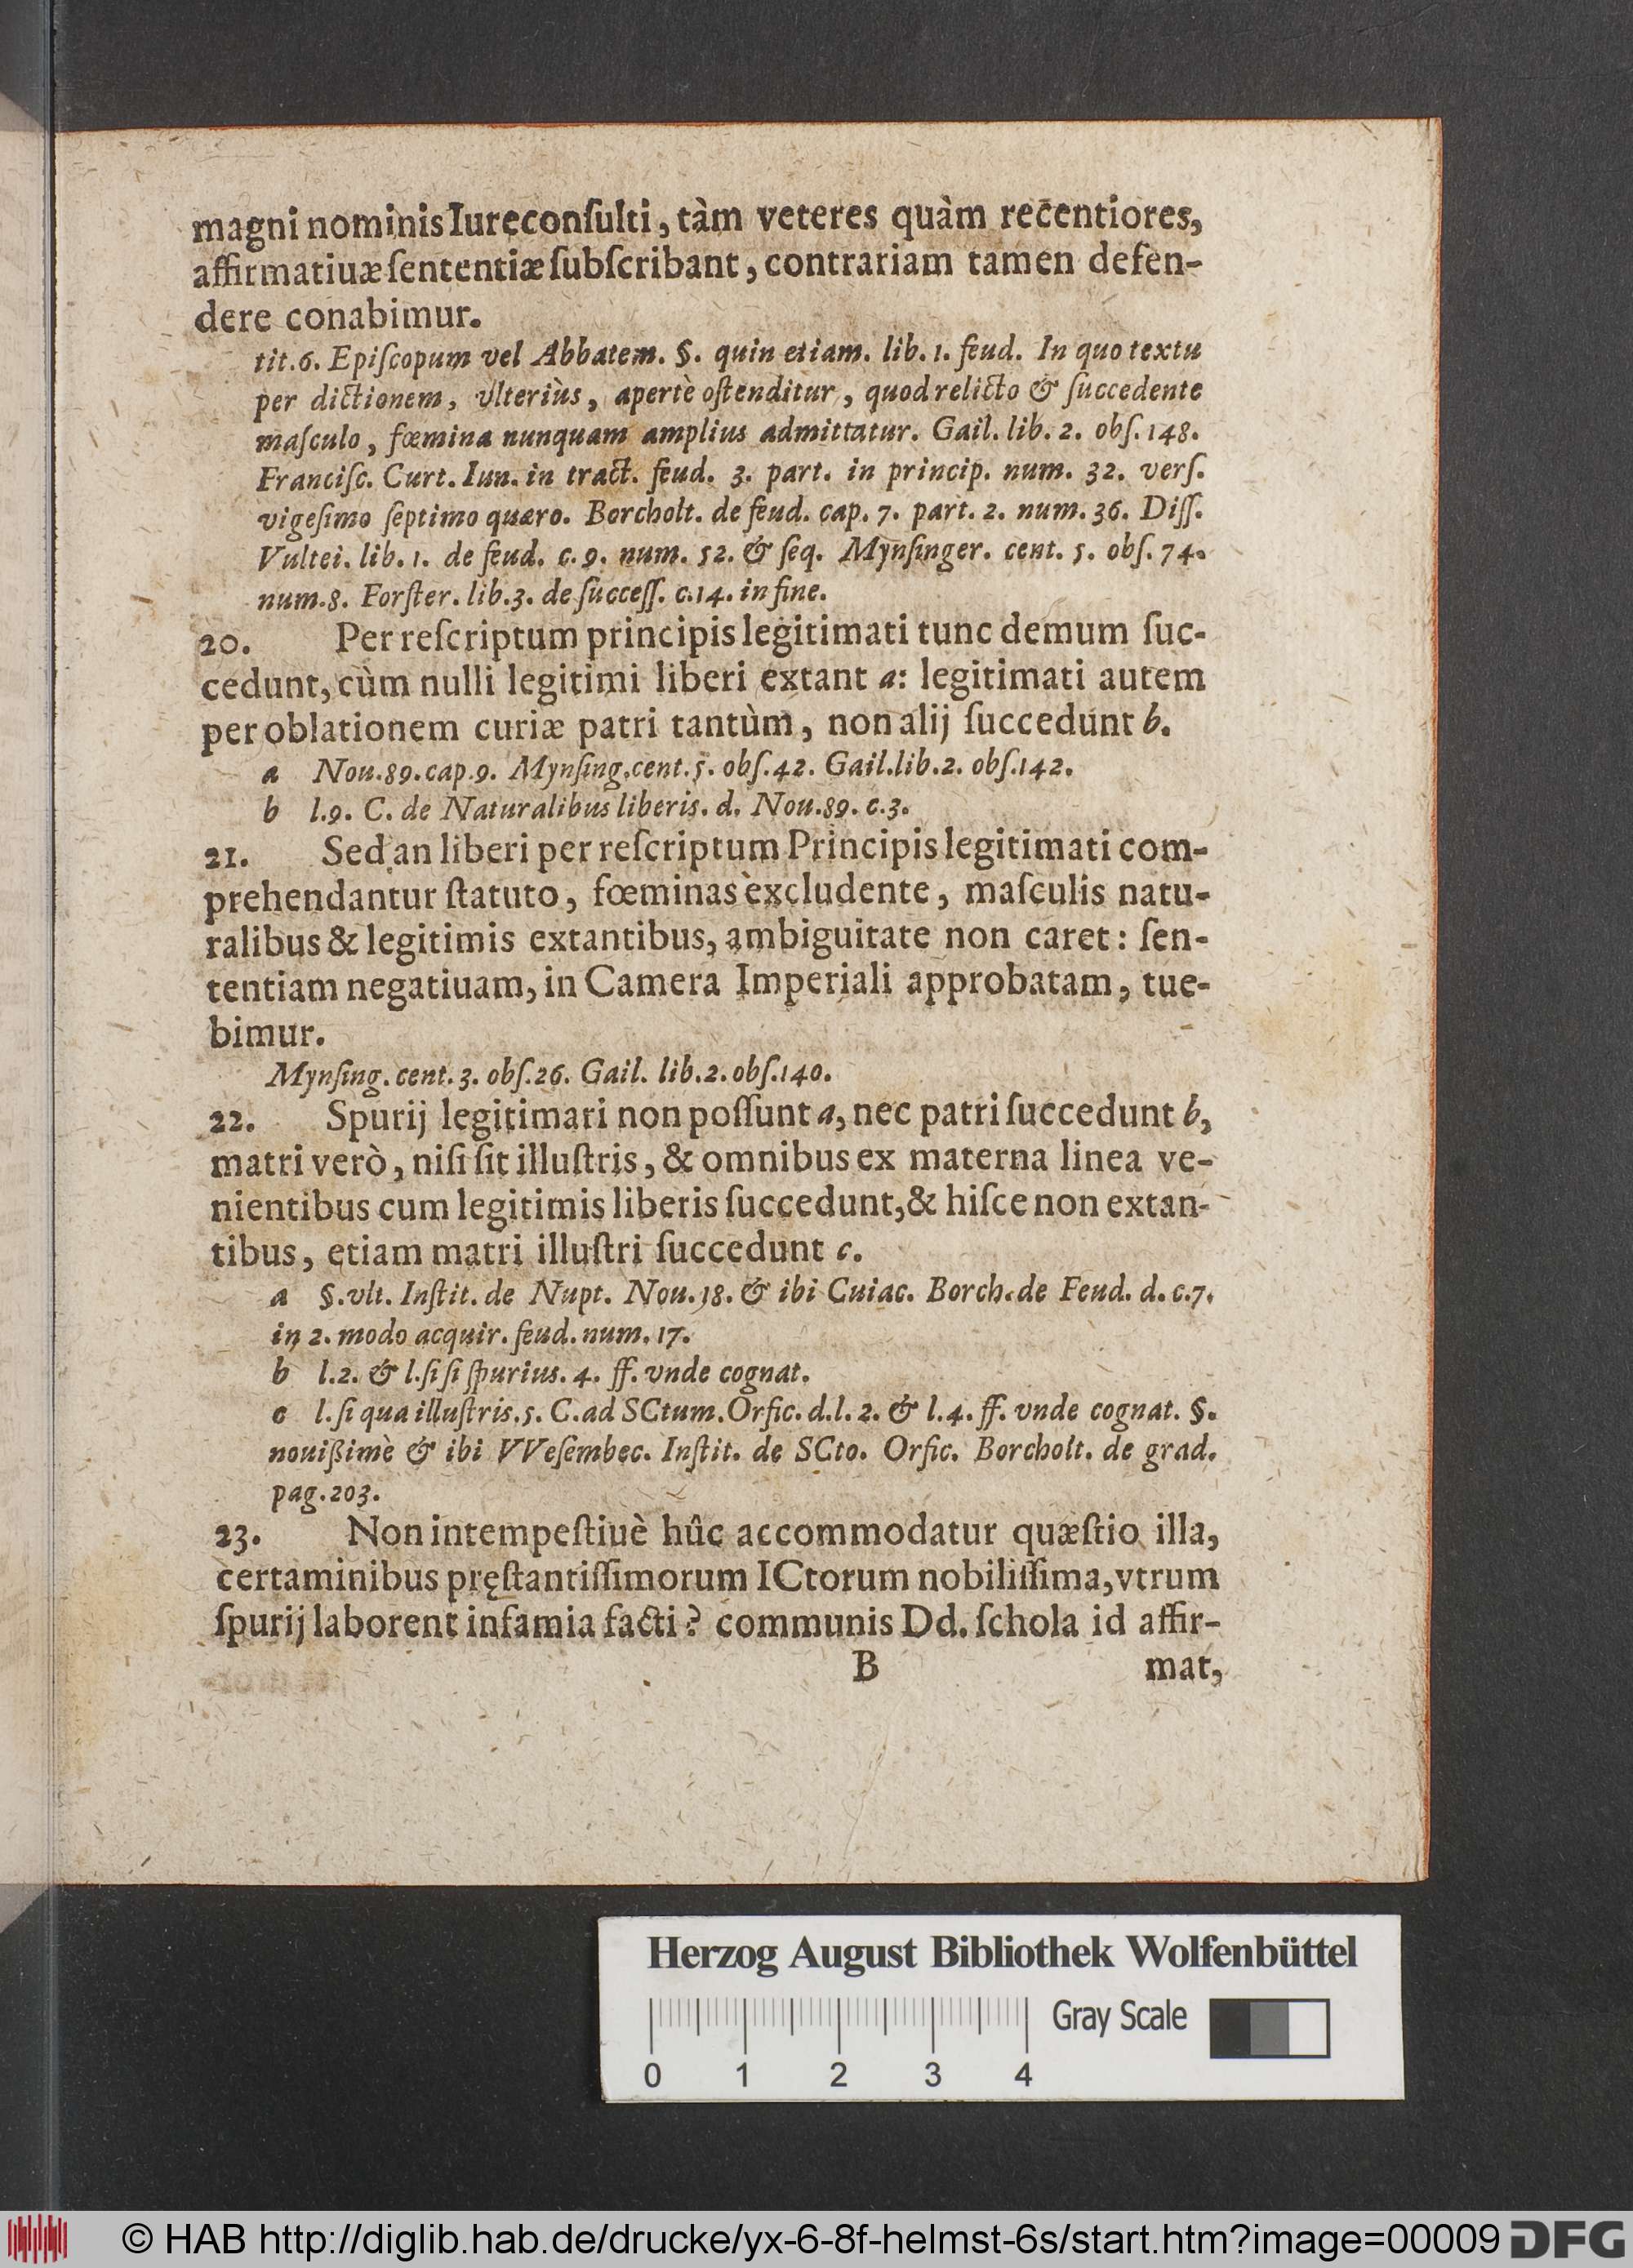 magni nominis Iureconſulti, tàm veteres quàm recentiores,
affirmatiuæ ſententiæ ſubſcribant, contrariam tamen defen-
dere conabimur.
tit. 6. Epiſcopum vel Abbatem. §. quin etiam. lib. 1. feud. In quo textu
per dictionem, vlteriùs, apertè oſtenditur, quod relicto & ſuccedente
maſculo, fœmina nunquam amplius admittatur. Gail. lib. 2. obſ. 148.
Franciſc. Curt. Iun. in tract. feud. 3. part. in princip. num. 32. verſ.
vigeſimo ſeptimo quæro. Borcholt. de feud. cap. 7. part. 2. num. 36. Diſſ.
Vultei. lib. 1. de feud. c. 9. num. 52. & ſeq. Mynſinger. cent. 5. obſ. 74.
num. 8. Forſter. lib. 3. de ſucceſſ. c. 14. in fine.
20. Per reſcriptum principis legitimati tunc demum ſuc-
cedunt, cùm nulli legitimi liberi extant a: legitimati autem
per oblationem curiæ patri tantùm, non alij ſuccedunt b.
a Nou. 89. cap. 9. Mynſing. cent. 5. obſ. 42. Gail. lib. 2. obſ. 142.
b l. 9. C. de Naturalibus liberis. d. Nou. 89. c. 3.
21. Sed an liberi per reſcriptum Principis legitimati com-
prehendantur ſtatuto, fœminas excludente, maſculis natu-
ralibus & legitimis extantibus, ambiguitate non caret: ſen-
tentiam negatiuam, in Camera Imperiali approbatam, tue-
bimur.
Mynſing. cent. 3. obſ. 26. Gail. lib. 2. obſ. 140.
22. Spurij legitimari non poſſunt a, nec patri ſuccedunt b,
matri verò, niſi ſit illuſtris, & omnibus ex materna linea ve-
nientibus cum legitimis liberis ſuccedunt, & hiſce non extan-
tibus, etiam matri illuſtri ſuccedunt c.
a §. vlt. Inſtit. de Nupt. Nou. 18. & ibi Cuiac. Borch. de Feud. d. c. 7.
in 2. modo acquir. feud. num. 17.
b l. 2. & l. ſi ſi ſpurius. 4. ff. vnde cognat.
c l. ſi qua illuſtris. 5. C. ad SCtum. Orfic. d. l. 2. & l. 4. ff. vnde cognat. §.
nouißimè & ibi VVeſembec. Inſtit. de SCto. Orfic. Borcholt. de grad.
pag. 203.
23. Non intempeſtiuè hûc accommodatur quæſtio illa,
certaminibus pręſtantiſſimorum ICtorum nobiliſſima, vtrum
ſpurij laborent infamia facti? communis Dd. ſchola id affir-
B mat,
Herzog August Bibliothek Wolfenbüttel
Gray Scale
0 1 2 3 4
© HAB http://diglib.hab.de/drucke/yx-6-8f-helmst-6s/start.htm?image=00009 DFG